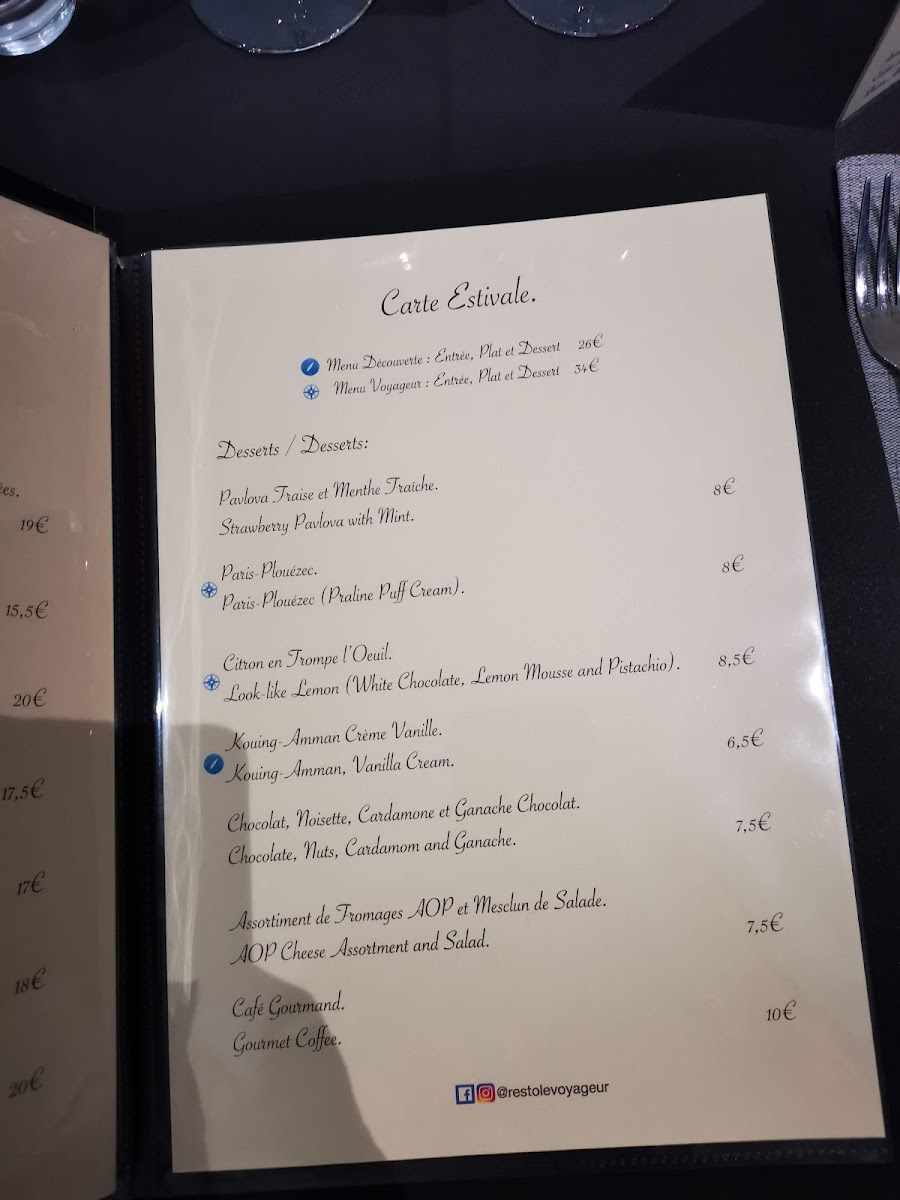 Carte Estivale.
Menu Découverte : Entrée, Plat et Dessert 26€
Menu Voyageur : Entrée, Plat et Dessert 34€
Desserts / Desserts:
Pavlova Fraise et Menthe Fraîche. 8€
Strawberry Pavlova with Mint.
Paris-Plouézec. 8€
Paris-Plouézec (Praline Puff Cream).
Citron en Trompe l'Oeuil.
Look-like Lemon (White Chocolate, Lemon Mousse and Pistachio). 8,5€
Kouing-Amman Crème Vanille. 6,5€
Kouing-Amman, Vanilla Cream.
Chocolat, Noisette, Cardamone et Ganache Chocolat. 7,5€
Chocolate, Nuts, Cardamom and Ganache.
Assortiment de Fromages AOP et Mesclun de Salade. 7,5€
AOP Cheese Assortment and Salad.
Café Gourmand. 10€
Gourmet Coffee.
@restolevoyageur
19€
15,5€
20€
17,5€
17€
18€
20€